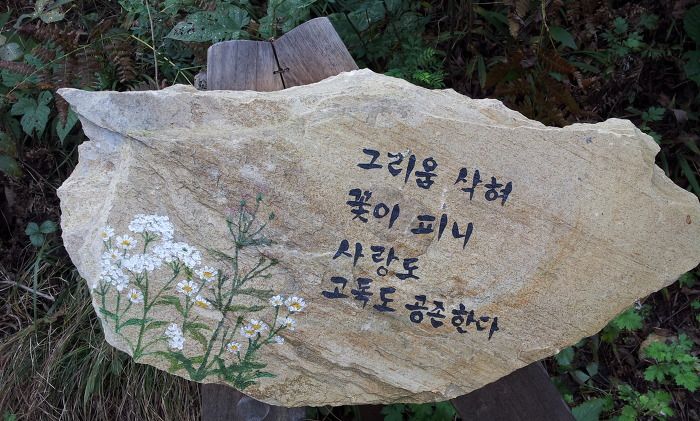 그리움 삭혀
꽃이 피니
사랑도
고독도 공존한다